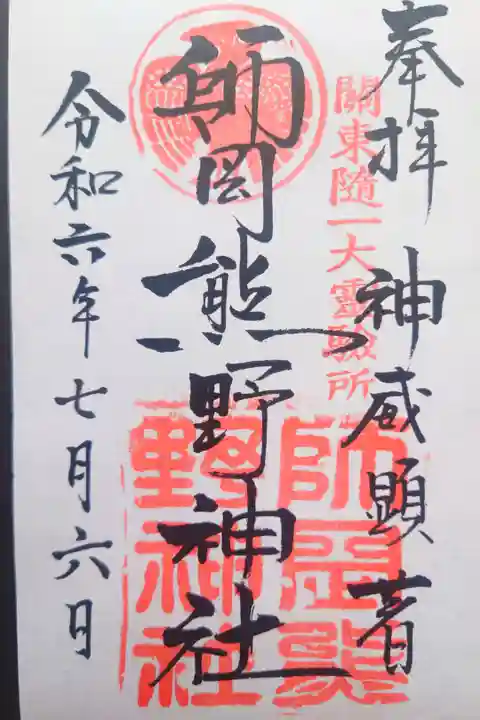 奉拝 神威顕著
關東隨一大霊驗所
師岡熊野神社
師岡熊野神社
令和六年七月六日